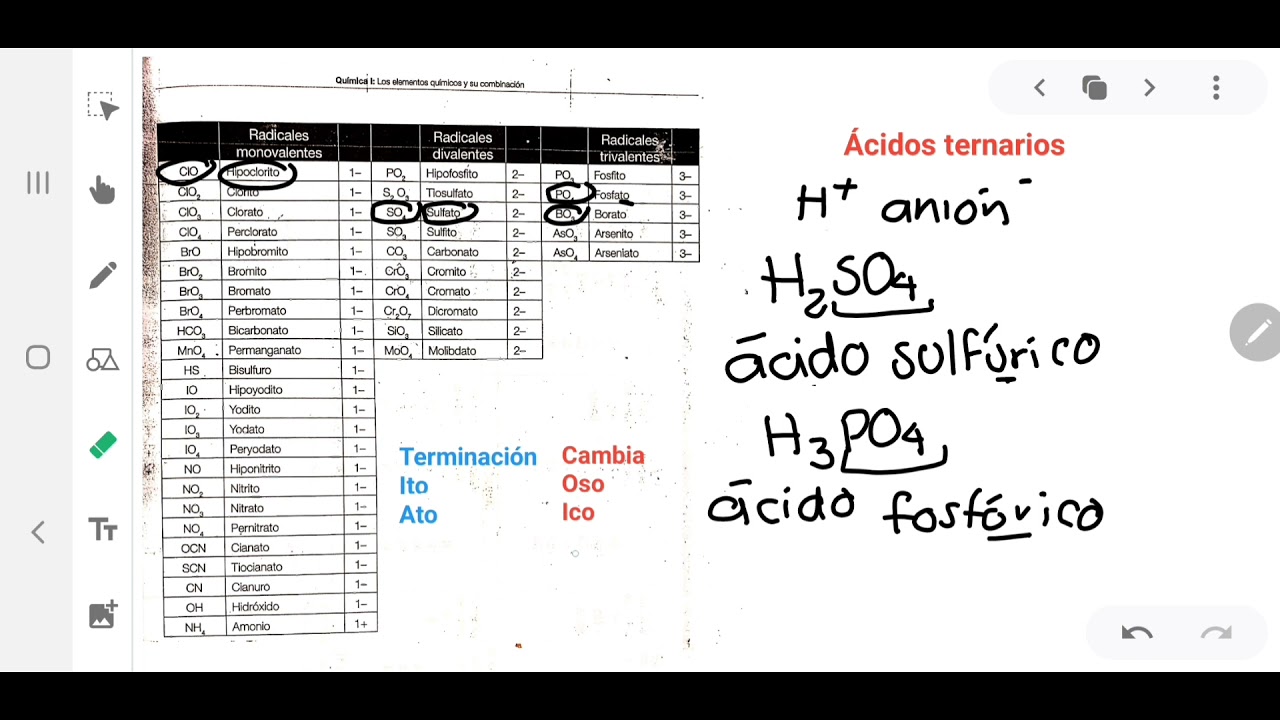 Química I: Los elementos químicos y su combinación
Radicales monovalentes
Radicales divalentes
Radicales trivalentes
ClO Hipoclorito 1– PO₂ Hipofosfito 2– PO₃ Fosfito 3–
ClO₂ Clorito 1– S₂O₃ Tiosulfato 2– PO Fosfato 3–
ClO₃ Clorato 1– SO Sulfato 2– BO₃ Borato 3–
ClO₄ Perclorato 1– SO₃ Sulfito 2– AsO₃ Arsenito 3–
BrO Hipobromito 1– CO₃ Carbonato 2– AsO₄ Arseniato 3–
BrO₂ Bromito 1– CrO₃ Cromito 2–
BrO₃ Bromato 1– CrO₄ Cromato 2–
BrO₄ Perbromato 1– Cr₂O₇ Dicromato 2–
HCO₃ Bicarbonato 1– SiO₃ Silicato 2–
MnO₄ Permanganato 1– MoO₄ Molibdato 2–
HS Bisulfuro 1–
IO Hipoyodito 1–
IO₂ Yodito 1–
IO₃ Yodato 1–
IO₄ Peryodato 1–
NO Hiponitrito 1–
NO₂ Nitrito 1–
NO₃ Nitrato 1–
NO₄ Pernitrato 1–
OCN Cianato 1–
SCN Tiocianato 1–
CN Cianuro 1–
OH Hidróxido 1–
NH₄ Amonio 1+
Terminación Cambia
Ito Oso
Ato Ico
Ácidos ternarios
H⁺ anión⁻
H₂SO₄
ácido sulfúrico
H₃PO₄
ácido fosfórico
TT